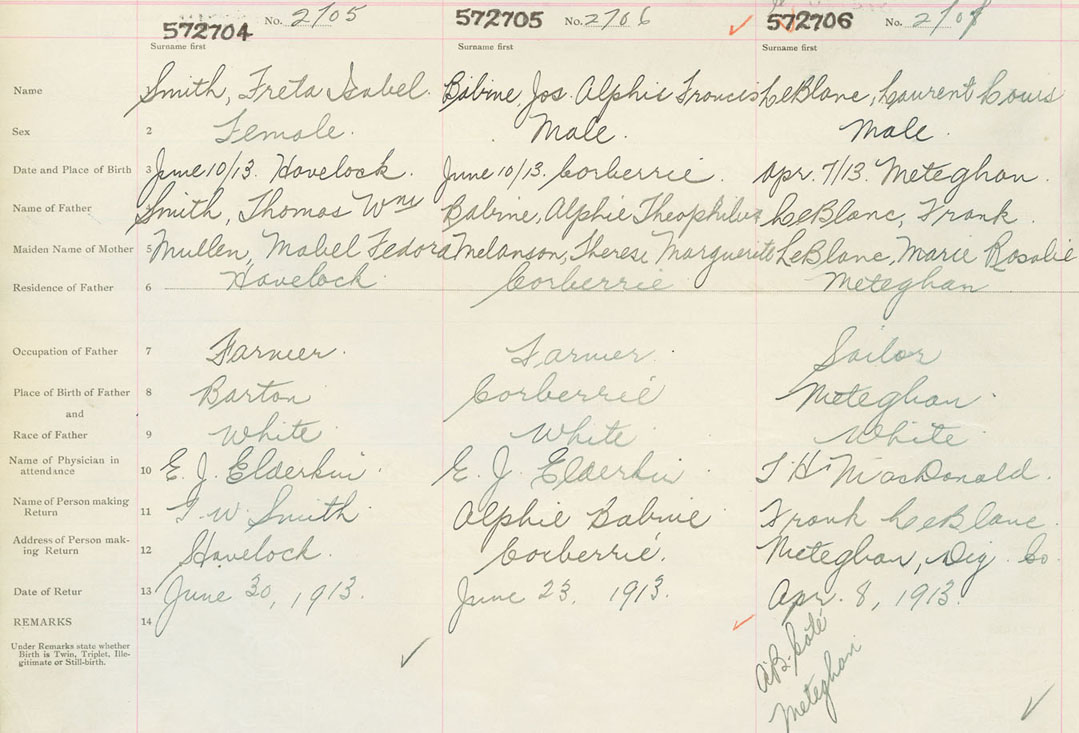 572704 No. 2705 572705 No. 2706 572706 No. 2707
Surname first Surname first Surname first
Name Smith, Freta Isabel. Babine, Jos. Alphie Francis LeBlanc, Laurent Louis
Sex 2 Female. Male. Male.
Date and Place of Birth 3 June 10/13. Havelock. June 10/13. Corberrie. Apr. 7/13. Meteghan.
Name of Father Smith, Thomas Wm Babine, Alphie Theophilus LeBlanc, Frank.
Maiden Name of Mother 5 Mullen, Mabel Fedora Melanson, Therese Marguerite LeBlanc, Marie Rosalie
Residence of Father 6 Havelock Corberrie Meteghan
Occupation of Father 7 Farmer. Farmer. Sailor
Place of Birth of Father 8 Barton Corberrié Meteghan.
and
Race of Father 9 White White White
Name of Physician in
attendance 10 E. J. Elderkin. E. J. Elderkin MacDonald.
Name of Person making
Return 11 T. W. Smith Alphie Babine Frank LeBlanc.
Address of Person mak-
ing Return 12 Havelock. Corberrié. Meteghan, Dig. Co.
Date of Retur 13 June 30, 1913. June 23, 1913. Apr. 8, 1913.
REMARKS 14
Under Remarks state whether
Birth is Twin, Triplet, Ille-
gitimate or Still-birth.
Meteghan